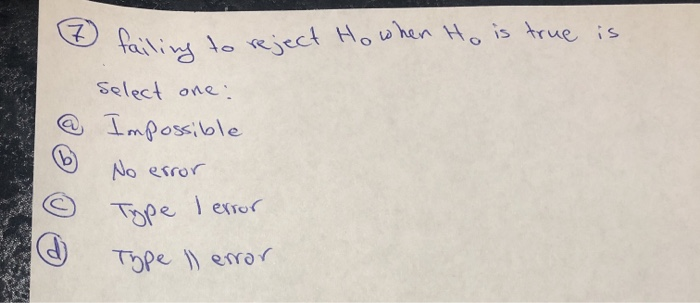 7 failing to reject Ho when Ho is true is
select one:
a Impossible
b No error
c Type I error
d Type II error